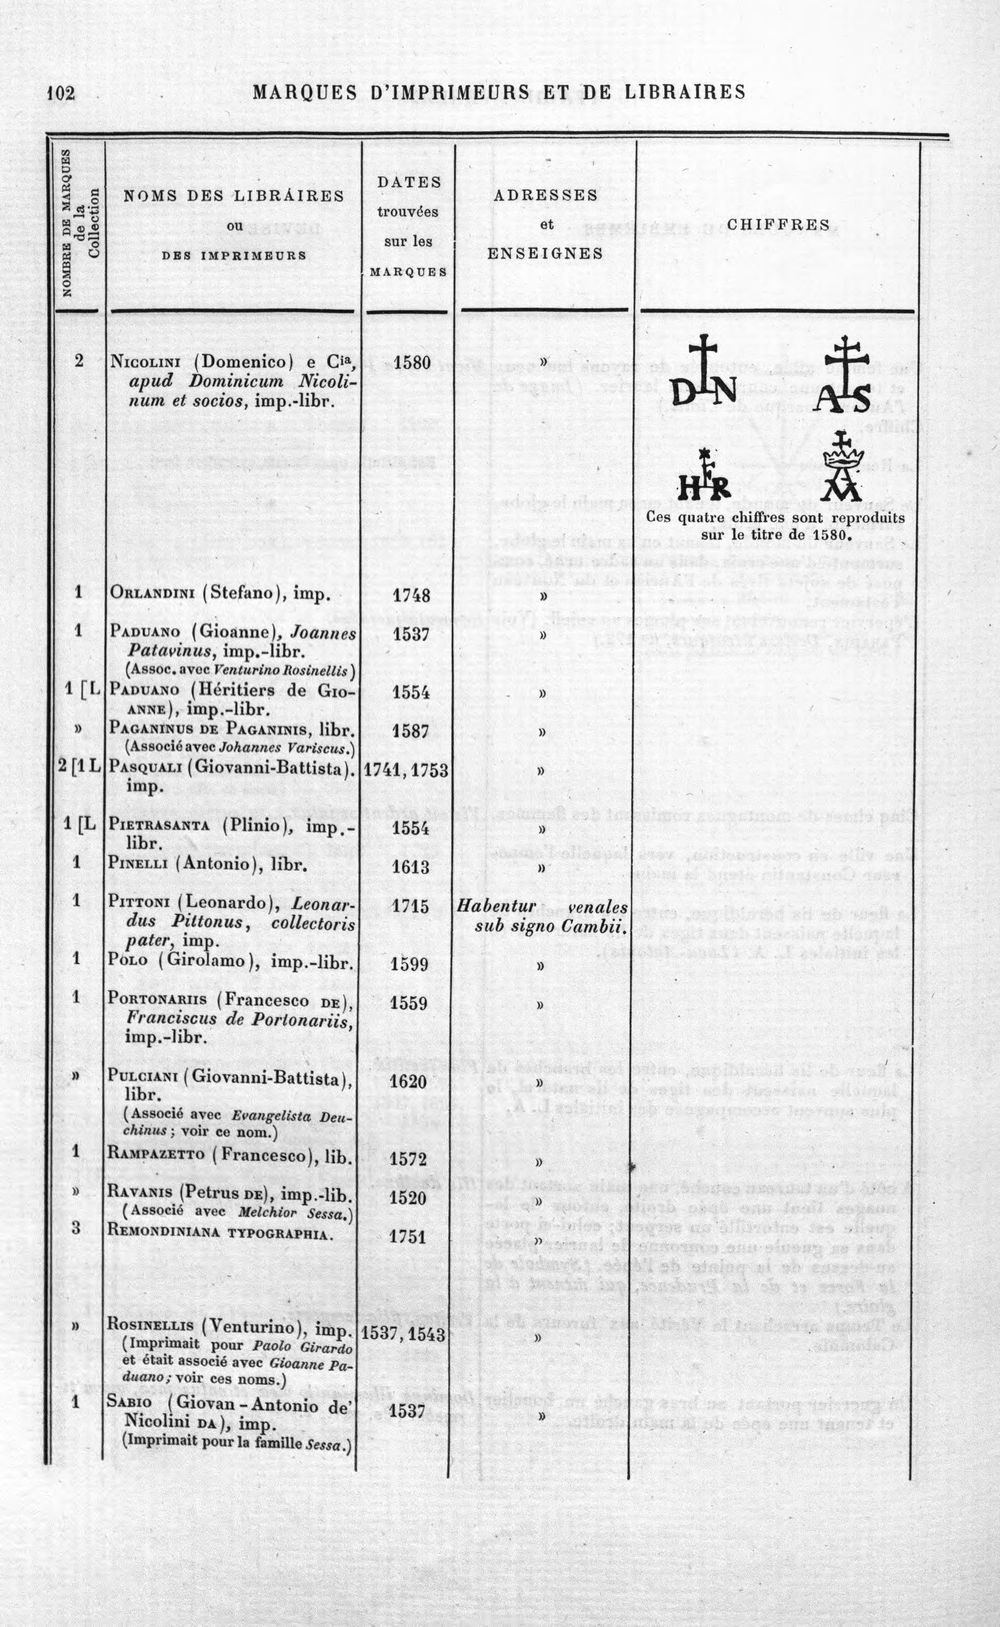 102
MARQUES D'IMPRIMEURS ET DE LIBRAIRES
NOMBRE DE MARQUES
de la
Collection
NOMS DES LIBRAIRES
ou
DES IMPRIMEURS
DATES
trouvées
sur les
MARQUES
ADRESSES
et
ENSEIGNES
CHIFFRES
2 NICOLINI (Domenico) e Cia, 1580 »
apud Dominicum Nicoli-
num et socios, imp.-libr.
D N A S
H F R A M
Ces quatre chiffres sont reproduits
sur le titre de 1580.
1 ORLANDINI (Stefano), imp. 1748 »
1 PADUANO (Gioanne), Joannes 1537 »
Patavinus, imp.-libr.
(Assoc. avec Venturino Rosinellis)
1 [L PADUANO (Héritiers de GIO- 1554 »
ANNE), imp.-libr.
» PAGANINUS DE PAGANINIS, libr. 1587 »
(Associé avec Johannes Variscus.)
2 [1 L PASQUALI (Giovanni-Battista). 1741, 1753 »
imp.
1 [L PIETRASANTA (Plinio), imp.- 1554 »
libr.
1 PINELLI (Antonio), libr. 1613 »
1 PITTONI (Leonardo), Leonar- 1715 Habentur venales
dus Pittonus, collectoris sub signo Cambii.
pater, imp.
1 POLO (Girolamo), imp.-libr. 1599 »
1 PORTONARIIS (Francesco DE), 1559 »
Franciscus de Portonariis,
imp.-libr.
» PULCIANI (Giovanni-Battista), 1620 »
libr.
(Associé avec Evangelista Deu-
chinus; voir ce nom.)
1 RAMPAZETTO (Francesco), lib. 1572 »
» RAVANIS (Petrus DE), imp.-lib. 1520 »
(Associé avec Melchior Sessa.)
3 REMONDINIANA TYPOGRAPHIA. 1751 »
» ROSINELLIS (Venturino), imp. 1537, 1543 »
(Imprimait pour Paolo Girardo
et était associé avec Gioanne Pa-
duano; voir ces noms.)
1 SABIO (Giovan-Antonio de' 1537 »
Nicolini DA), imp.
(Imprimait pour la famille Sessa.)